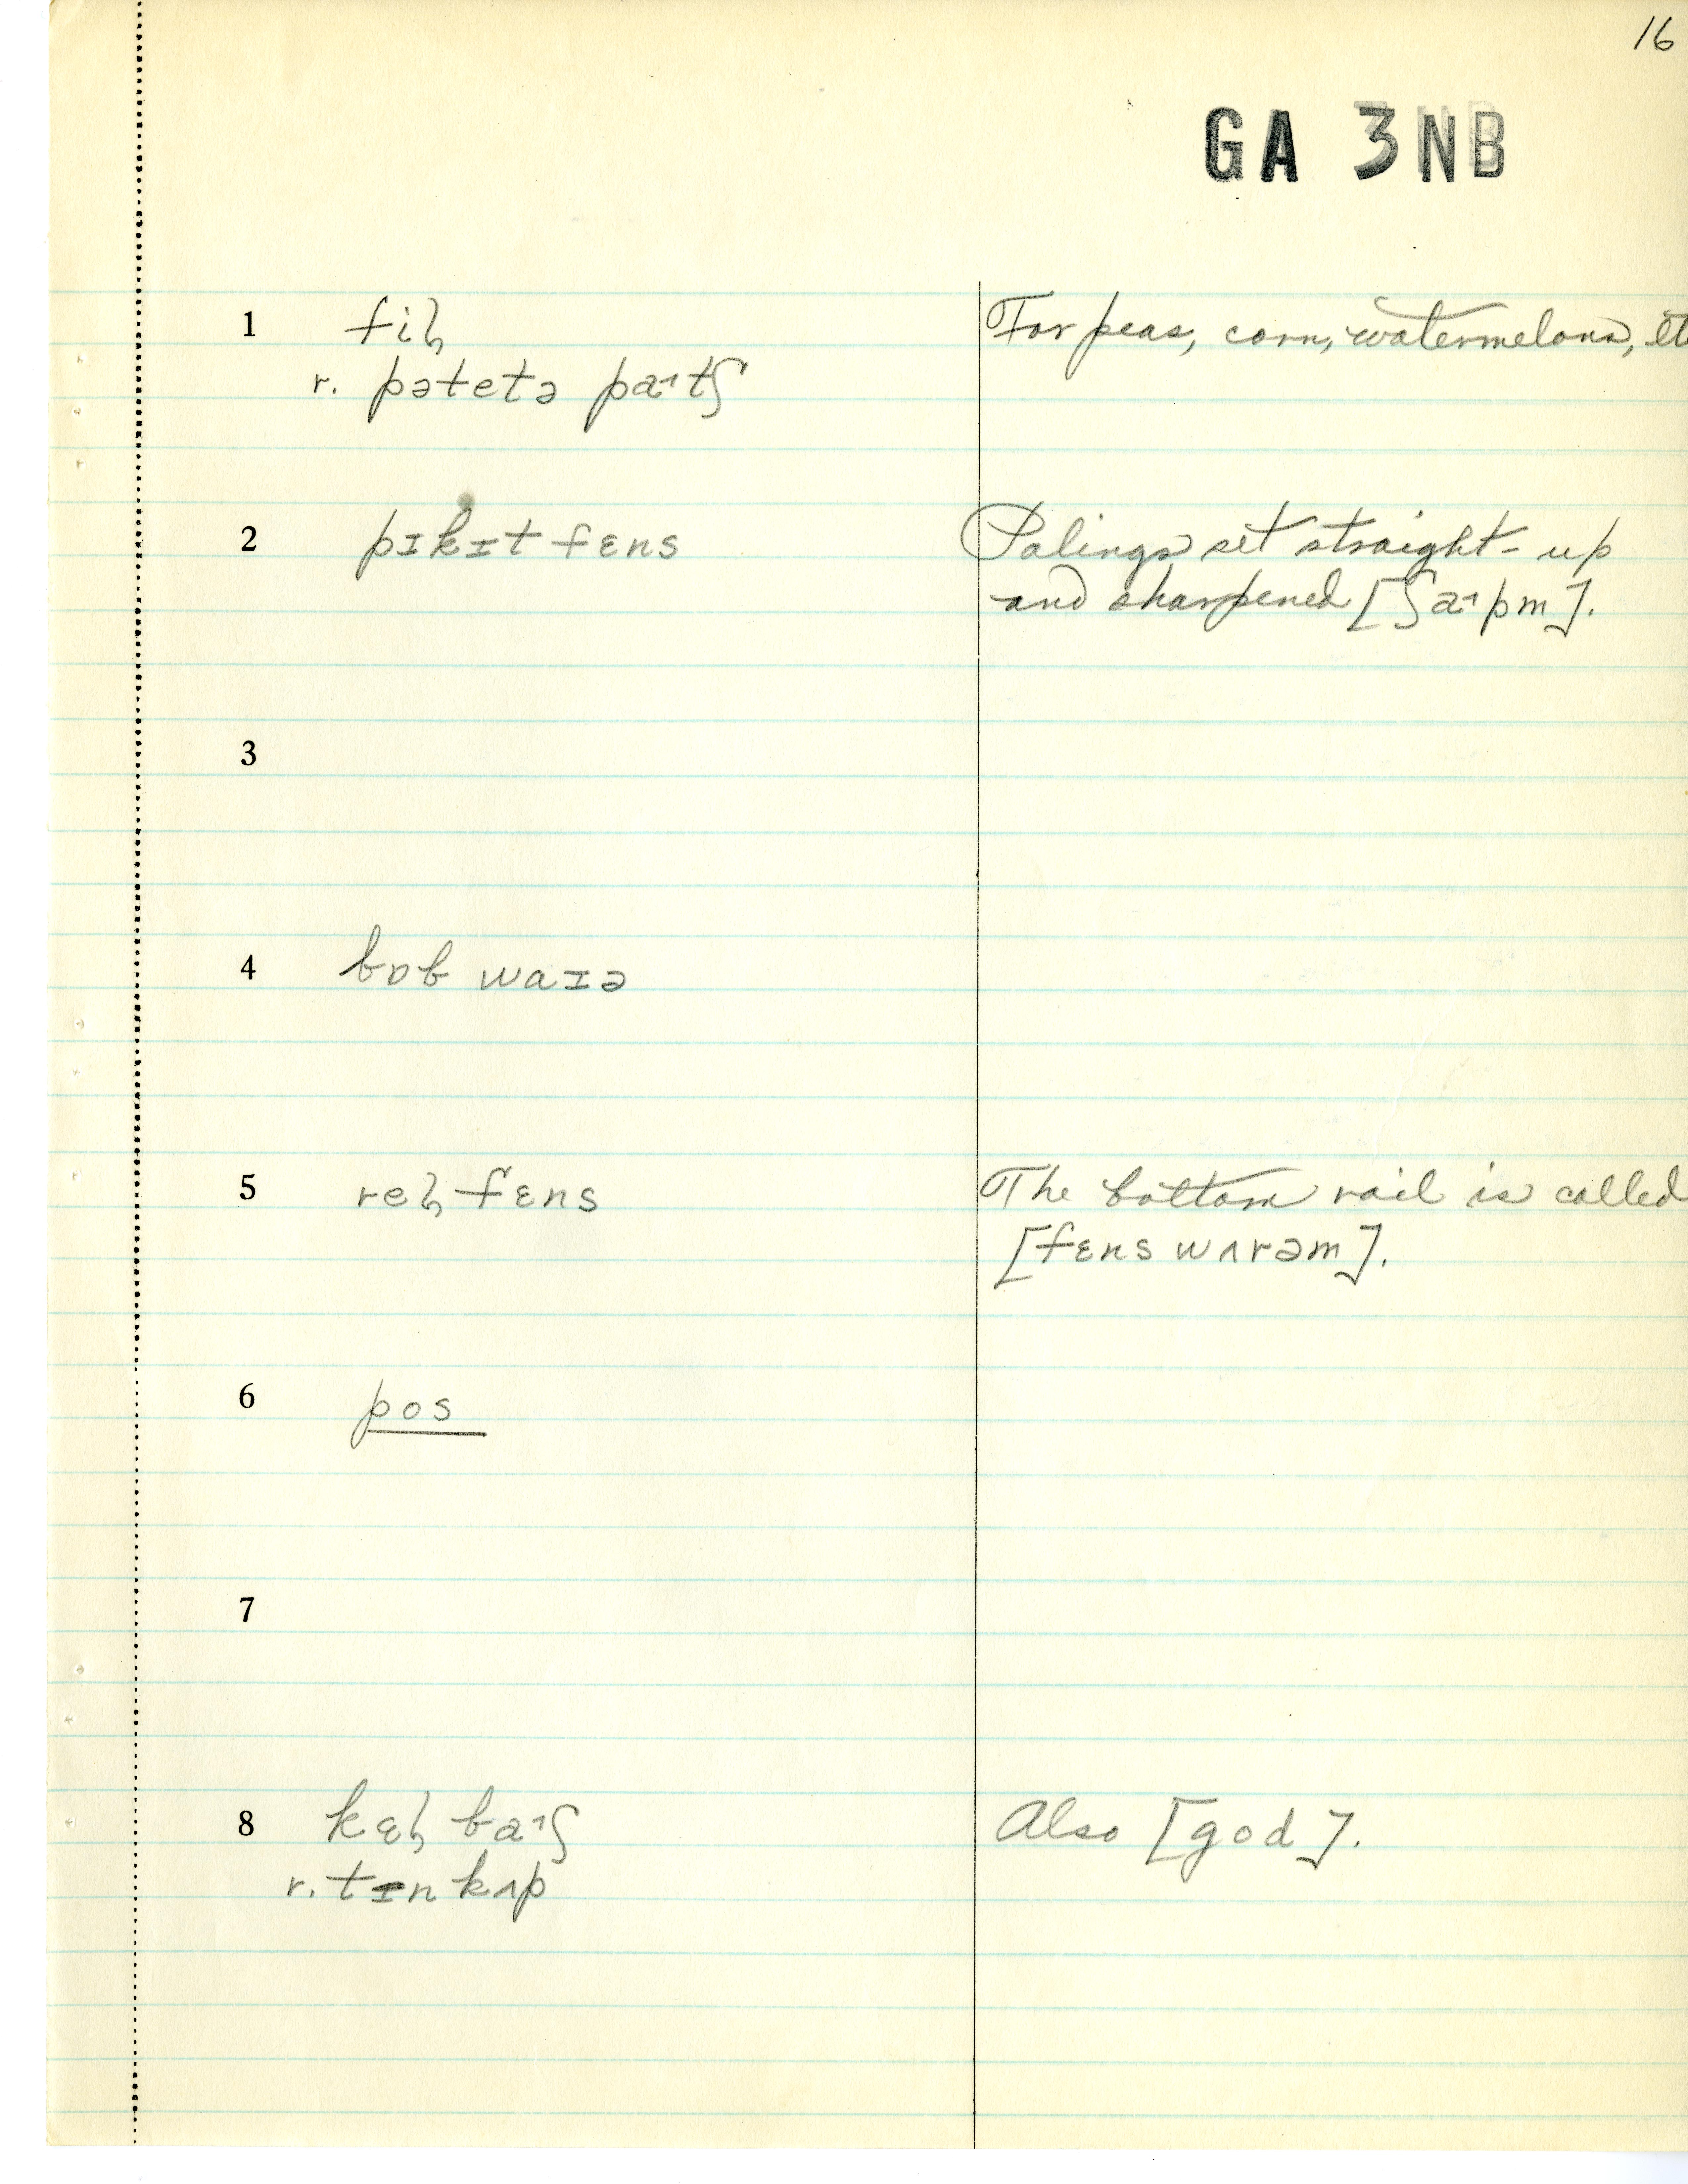 16
GA 3NB
1 fiɫ̡ For peas, corn, watermelons, etc
r. pətetə pa˧tʃ
2 pɪkɪt fɛns Palings set straight-up
and sharpened [ʃa˧pm].
3
4 bɒb waɪə
5 reɫ̡ fɛns The bottom rail is called
[fɛns wʌrəm].
6 pos
7
8 kɛɫ̡ ba˧ʃ Also [god].
r. tɪn kʌp